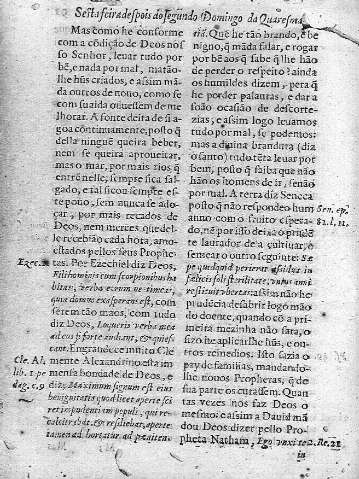 Sesta feira despois do segundo Domingo da Quaresma
Mas como he conforme
com a cõdição de Deos nos
so Senhor, leuar tudo por
bẽ, e nada por mal, matão-
lhe hũs criados, e assim mã
da outros de nouo, como se
com sua ida ouuessem de me
lhorar. A fonte deita de si a-
goa continuamente, posto q̃
della ninguẽ queira beber,
nem se queira aproueitar,
mas o mar, por mais rios q̃
entrẽ nelle, sempre fica sal-
gado, e tal ficou sempre es-
te pouo, sem nunca se ado-
çar, por mais recados de
Deos, nem merces que del-
le recebião cada hora, amo-
estados pellos seus Prophe-
tas. Por Ezechiel diz Deos,
Ezec.
habi-
tas, verba eorum ne timeas,
com
serem tão maos, com tudo
diz Deos, Loqueris verba mea
ad eos
Engrandece muito Cle
Cle. Al.
mente Alexandrino esta im
lib. 1. pe
mensa bondade de Deos, e
dag. c. 9
diz, Maximum signum est eius
benignitatis quod licet aperte sci-
ret impudentiam populi, qui re-
aperte
tamen ad hortatur ad pœniten-
ria. Que he tão brando, e be
nigno, q̃ mãda falar, e rogar
por bẽ aos q̃ sabe q̃ lhe hão
de perder o respeito? ainda
os humildes dizem, pera q̃
he perder palauras, e dar a
soão ocasião de descorte-
zias, e assim logo leuamos
tudo por mal, se podemos:
mas a diuina brandura (diz
o santo) tudo tẽta leuar por
bem, posto q̃ saiba que não
hão os homens de ir, senão
por mal. A terra diz Seneca
posto q̃ não respondeo hum
Sen. ep.
anno com o fruito espera-
81. l. 11.
do, nẽ por isso deixa o prudẽ
te laurador de a cultiuar, e
semear o outro seguinte: Se
pe quidquid perierat assidua in
felicis soli sterilitate, vnius anni
restituit vbertas: assim não he
prudẽcia desabrir logo mão
do doente, quando cõ a pri
meira mezinha não sara, o
sizo he aplicar lhe hũs, e ou-
tros remedios. Isto fazia o
pay de familias, mandando-
lhe nouos Prophetas, q̃ de
sua parte os curassem. Quan
tas vezes nos faz Deos o
mesmo: e assim a Dauid mã
dou Deos dizer pello Pro-
pheta Natham, Ego vnxi te
2. Re. 21
in